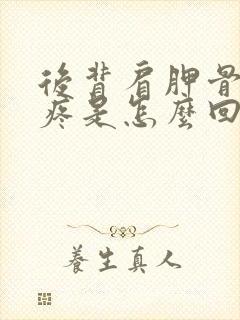 後背肩胛骨
疼是怎麼回
養生真人